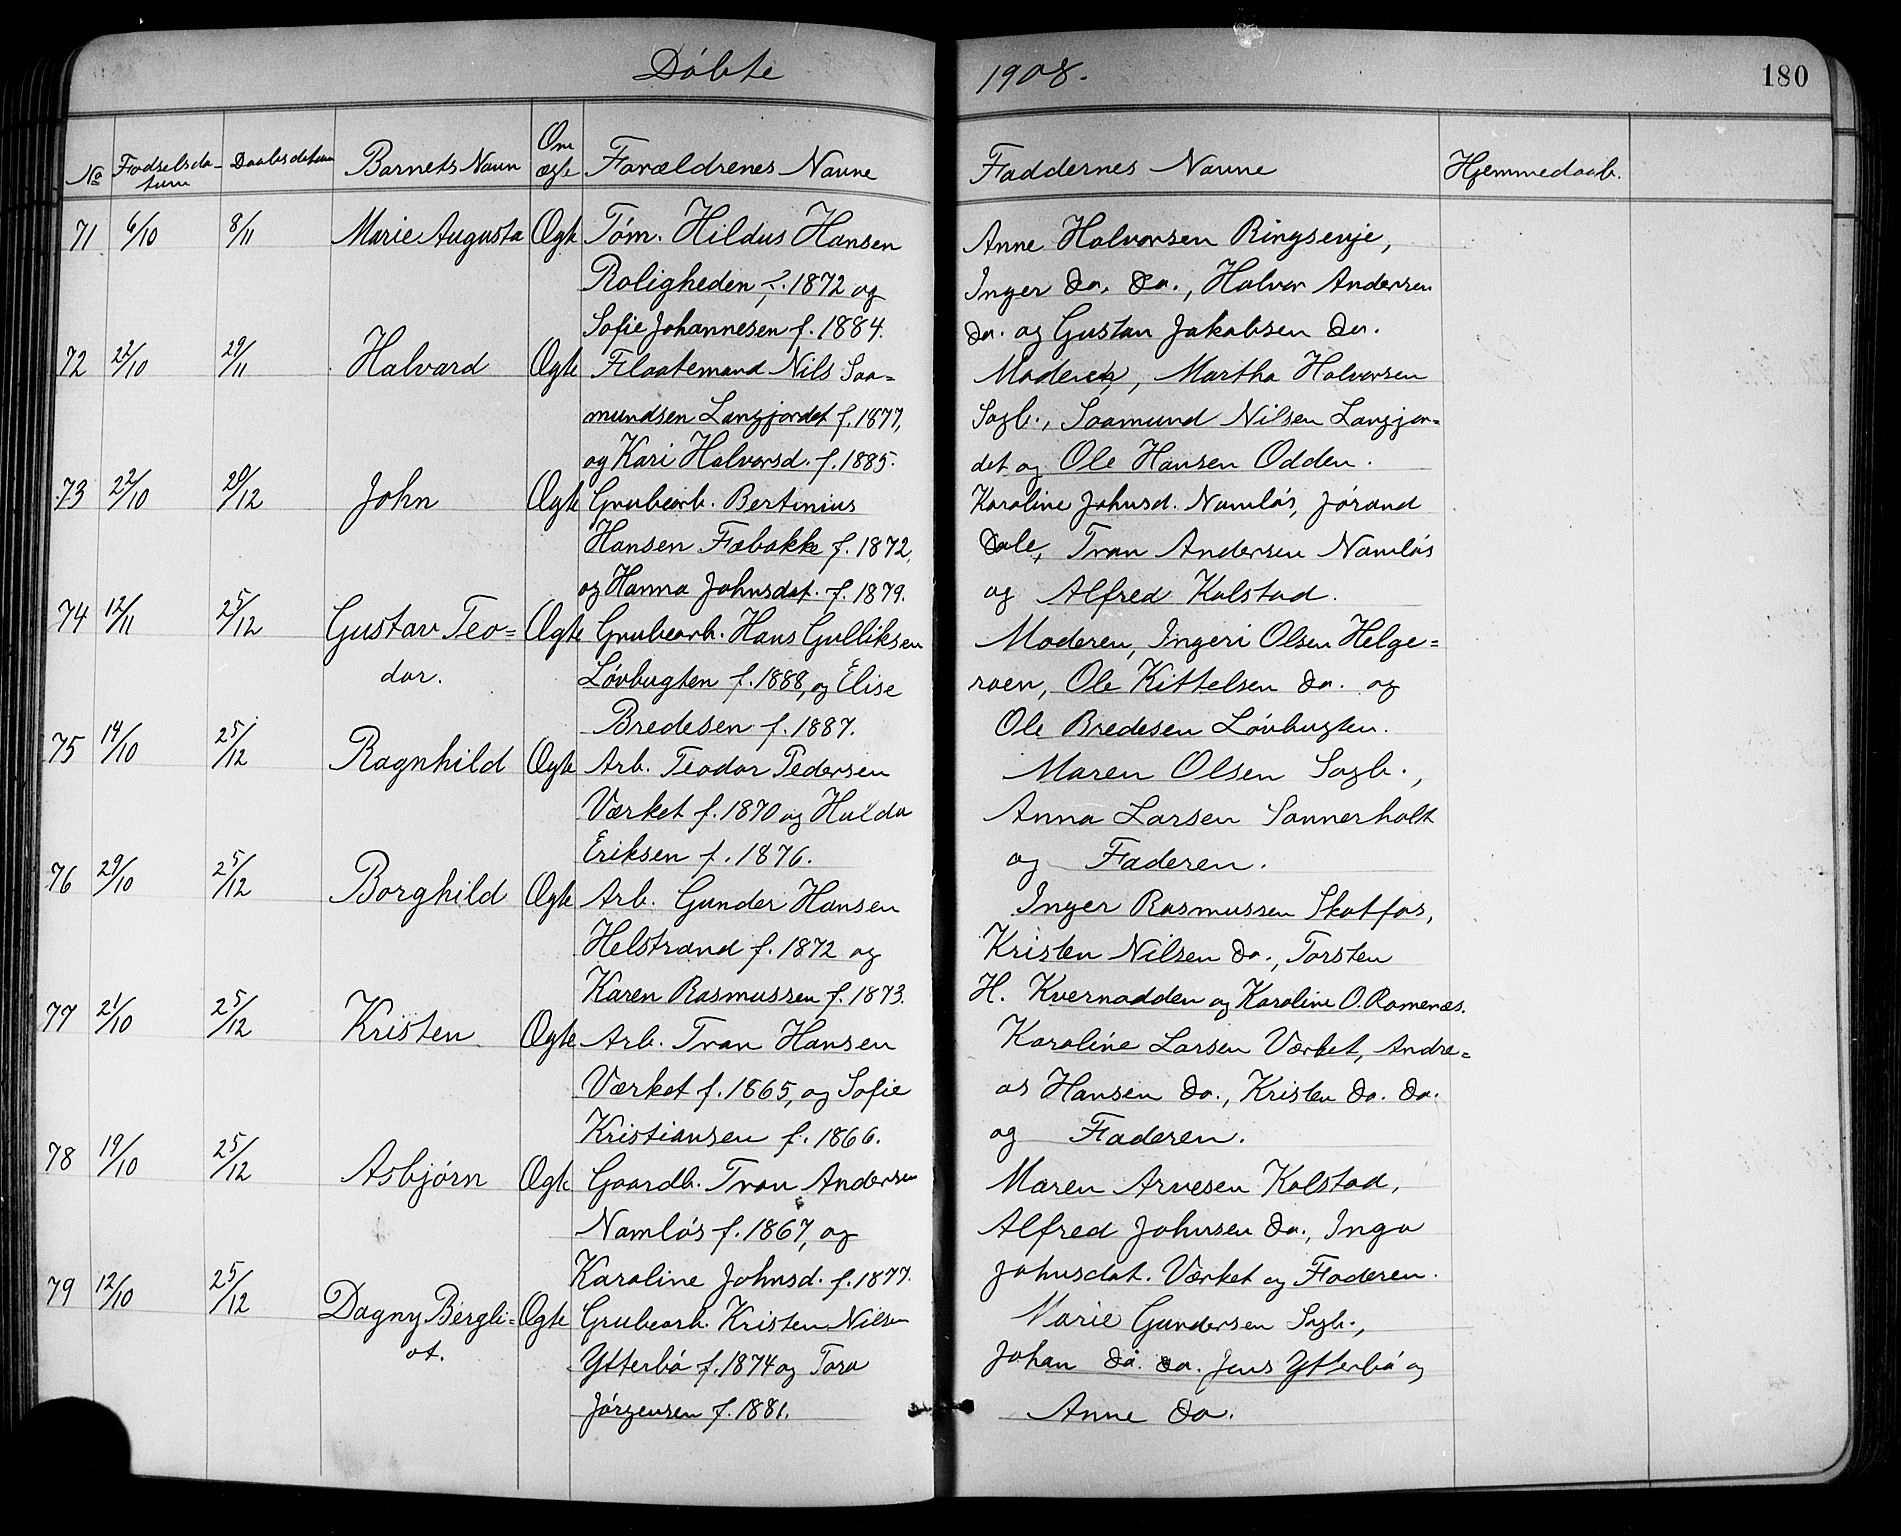 Döbte 1908. 180
No Fødselsdatum Daabsdatum Barnets Navn Om ægte Forældrenes Navne Faddernes Navne Hjemmedaab.
71 6/10 8/11 Marie Augusta Ægte Töm. Hildus Hansen Anne Halvorsen Ringsevje,
Roligheden f. 1872 og Inger do. do., Halvor Andersen
Sofie Johannesen f. 1884. do. og Gustav Jakobsen do.
72 22/10 29/11 Halvard Ægte Flaatemand Nils Saa= Moderen, Martha Halvorsen
mundsen Langjordet f. 1877, Sagb., Saamund Nilsen Langjor=
og Kari Halvorsd. f. 1885. det og Ole Hansen Odden.
73 22/10 20/12 John Ægte Grubearb. Bertinius Karoline Johnsd. Namlös, Jörand
Hansen Fæbakke f. 1872, Dale, Tron Andersen Namlös
og Hanna Johnsdat. f. 1879. og Alfred Kolstad.
74 12/11 25/12 Gustav Teo= Ægte Grubearb. Hans Gulliksen Moderen, Ingeri Olsen Helge=
dor. Lövbugten f. 1888, og Elise roen, Ole Kittelsen do. og
Bredesen f. 1887. Ole Bredesen Lövbugten.
75 14/10 25/12 Ragnhild Ægte Arb. Teodor Pedersen Maren Olsen Sagb.,
Værket f. 1870 og Hulda Anna Larsen Sannerholt
Eriksen f. 1876. og Faderen.
76 29/10 25/12 Borghild Ægte Arb. Gunder Hansen Inger Rasmussen Skotfos,
Helstrand f. 1872 og Kristen Nilsen do., Torsten
Karen Rasmussen f. 1873. H. Kvernodden og Karoline O. Romenæs.
77 21/10 25/12 Kristen Ægte Arb. Tron Hansen Karoline Larsen Værket, Andre=
Værket f. 1865, og Sofie as Hansen do., Kristen do. do.
Kristiansen f. 1866. og Faderen.
78 19/10 25/12 Asbjørn Ægte Gaardb. Tron Andersen Maren Arvesen Kolstad,
Namlös f. 1867, og Alfred Johnsen do., Inga
Karoline Johnsd. f. 1877. Johnsdat. Værket og Faderen.
79 12/10 25/12 Dagny Bergli= Ægte Grubearb. Kristen Nilsen Marie Gundersen Sagb.,
ot. Ytterbö f. 1874 og Tora Johan do. do. Jens Ytterbö og
Jörgensen f. 1881. Anne do.